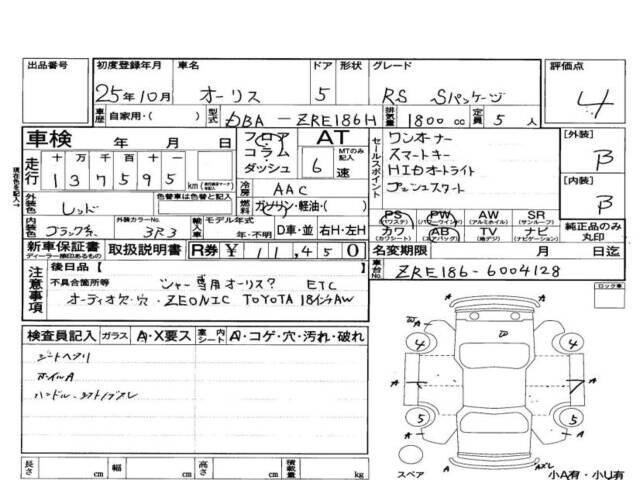 出品番号
初度登録年月
25年10月
車名
オーリス
ドア
5
形状
グレード
RS Sパッケージ
評価点
4
車歴
自家用・( )
型式
DBA-ZRE186H
排気量
1800cc
定員
5人
車検 年 月 日
フロア
コラム
ダッシュ
AT
MTのみ記入
6速
走行
十万千百十一
137595
km
セールスポイント
ワンオーナー
スマートキー
HIDオートライト
プッシュスタート
[外装]
B
[内装]
B
現在色を記入→
外装色
レッド
色替車は色替と記入
冷房
AAC
燃料
ガソリン・軽油・( )
内装色
ブラック系
外装カラーNo.
3R3
輸入車
モデル年式
年・不明
D車・並
右H・左H
PS
(パワステ)
PW
(パワーウインド)
AW
(アルミホイル)
SR
(サンルーフ)
カワ
(カワシート)
AB
(エアバッグ)
TV
(地デジ)
ナビ
(ナビゲーション)
純正品のみ
丸印
新車保証書
ディーラー捺印あるもの
取扱説明書
R券 ¥11,450
名変期限
月 日迄
注意事項
後日品[ ]
不具合箇所等
ETC
オーディオ欠・穴・ZEONIC TOYOTA 18インチAW
車台No.
ZRE186-6004128
ロック車
検査員記入
ガラス
A・X要ス
室内
シート
A・コゲ・穴・汚れ・破れ
シートヘタリ
ホイルA
4
4
5
5
A
A
A
A
A
スペア
小A有・小U有
長さ
cm
幅
cm
高さ
cm
積載量
kg